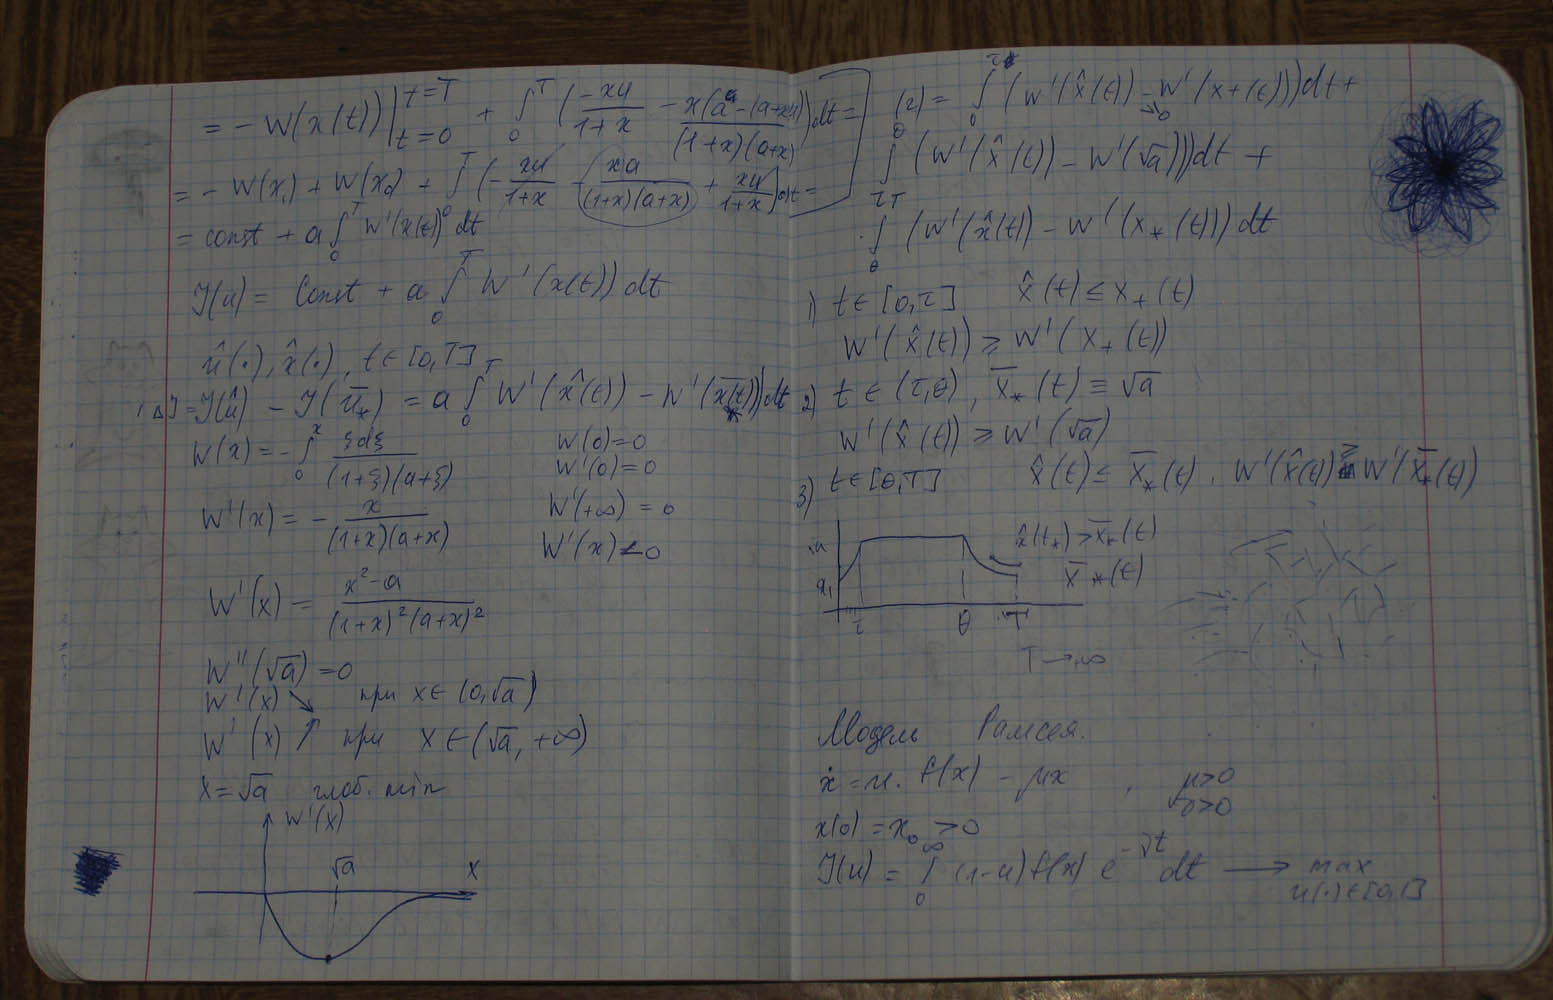 = - W(x(t)) |_{t=0}^{t=T} + ∫_0^T (-xu/(1+x) - x(a - (a+x)u)/((1+x)(a+x))) dt =
= - W(x_1) + W(x_0) + ∫_0^T (-xu/(1+x) - xa/((1+x)(a+x)) + xu/(1+x)) dt =
= const + a ∫_0^T W'(x(t)) dt
J(u) = Const + a ∫_0^T W'(x(t)) dt
û(·), x̂(·), t∈[0,T]
ΔJ = J(û) - J(ū_*) = a ∫_0^T W'(x̂(t)) - W'(x̄_*(t)) dt
W(x) = - ∫_0^x ξdξ/((1+ξ)(a+ξ)) W(0)=0
W'(0)=0
W'(x) = - x/((1+x)(a+x)) W'(+∞) = 0
W'(x) < 0
W'(x) = (x²-a)/((1+x)²(a+x)²)
W''(√a) = 0
W'(x) ↘ при x∈(0,√a)
W'(x) ↗ при x∈(√a, +∞)
x=√a глоб. min
W'(x)
√a x
(2) = ∫_0^τ (W'(x̂(t)) - W'(x_+(t))) dt +
∫_τ^θ (W'(x̂(t)) - W'(√a)) dt +
∫_θ^T (W'(x̂(t)) - W'(x_*(t))) dt
1) t∈[0,τ] x̂(t) ≤ x_+(t)
W'(x̂(t)) ≥ W'(x_+(t))
2) t∈(τ,θ), x̄_*(t) ≡ √a
W'(x̂(t)) ≥ W'(√a)
3) t∈[θ,T] x̂(t) ≤ x̄_*(t), W'(x̂(t)) ≥ W'(x̄_*(t))
x̂(t_*) > x̄_*(t)
x̄_*(t)
τ θ T
T→∞
Модель Рамсея.
ẋ = u·f(x) - μx, μ>0
x(0) = x_0 > 0
J(u) = ∫_0^∞ (1-u) f(x) e^{-rt} dt ⟶ max
u(·)∈[0,1]